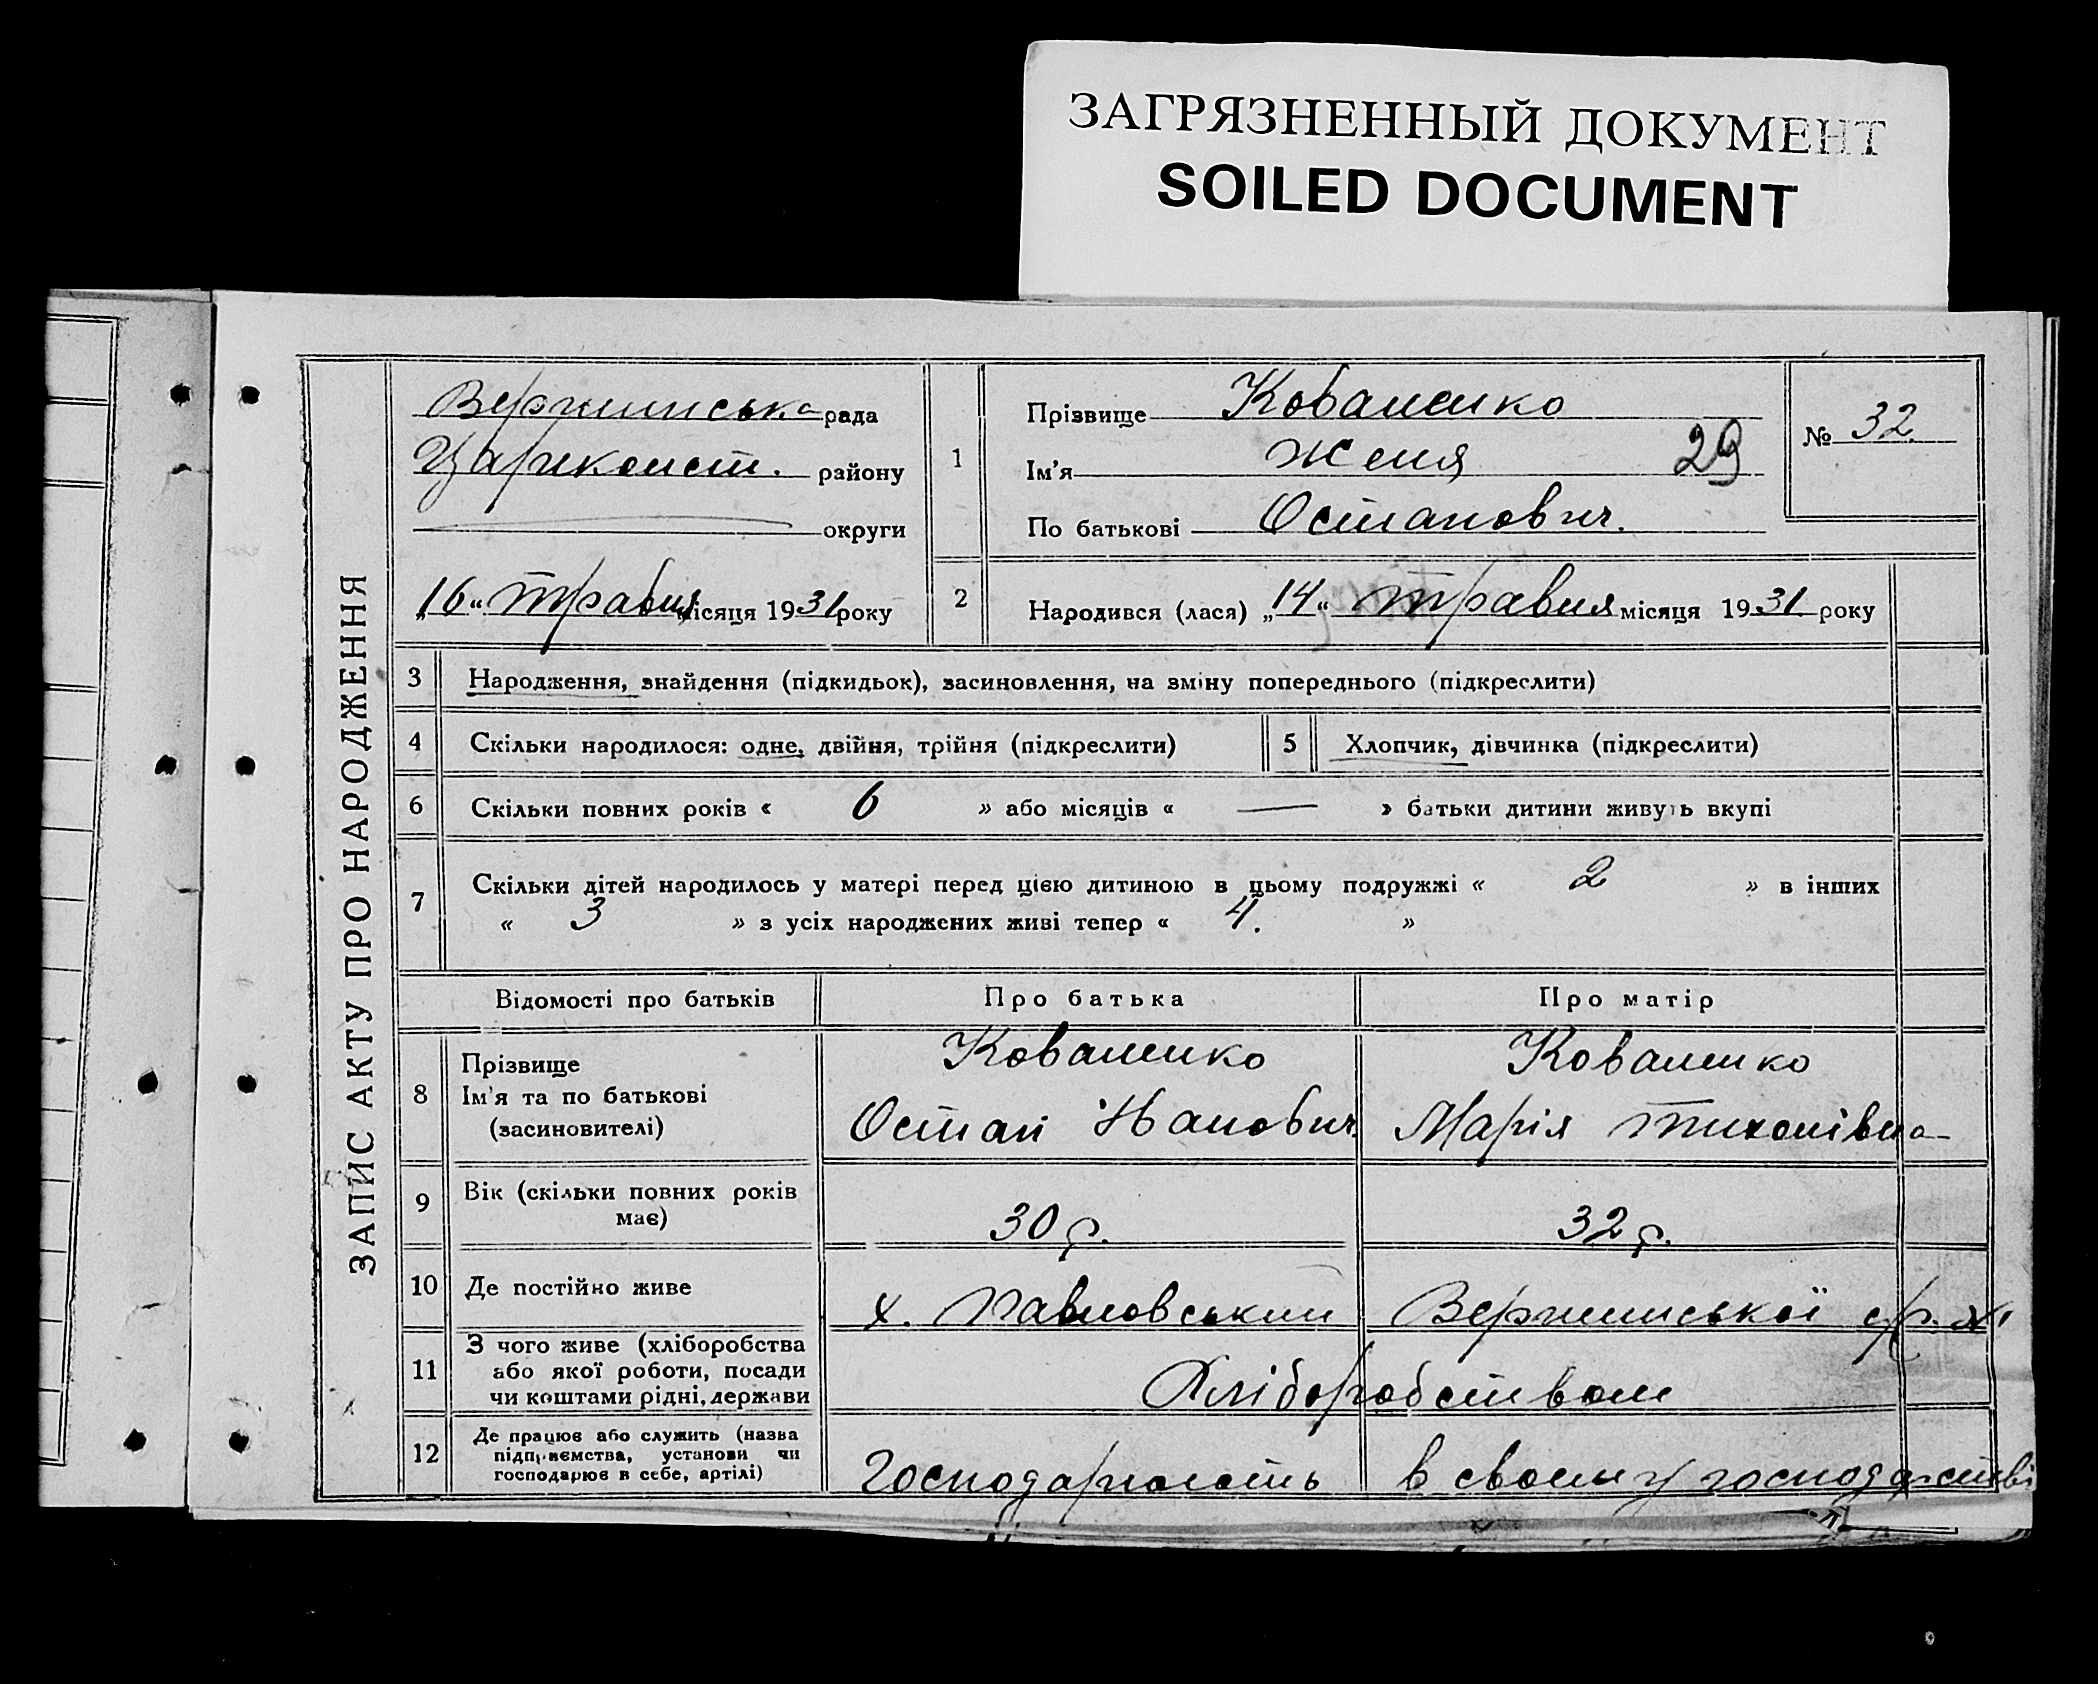 ЗАГРЯЗНЕННЫЙ ДОКУМЕНТ
SOILED DOCUMENT
ЗАПИС АКТУ ПРО НАРОДЖЕННЯ
Вершинська рада
Царикопст. району
округи
„16“ травня місяця 1931 року
1
Прізвище Коваленко
Ім'я Женя 29
По батькові Остапович.
№ 32
2 Народився (лася) „14“ травня місяця 1931 року
3 Народження, знайдення (підкидьок), засиновлення, на зміну попереднього (підкреслити)
4 Скільки народилося: одне, двійня, трійня (підкреслити) 5 Хлопчик, дівчинка (підкреслити)
6 Скільки повних років « 6 » або місяців « — » батьки дитини живуть вкупі
7 Скільки дітей народилось у матері перед цією дитиною в цьому подружжі « 2 » в інших
« 3 » з усіх народжених живі тепер « 4. »
Відомості про батьків Про батька Про матір
8 Прізвище Коваленко Коваленко
Ім'я та по батькові Остап Іванович Марія Тихонівна
(засиновителі)
9 Вік (скільки повних років
має) 30 р. 32 р.
10 Де постійно живе х. Павловський Вершинської с/р.
11 З чого живе (хліборобства
або якої роботи, посади
чи коштами рідні, держави Хліборобством
12 Де працює або служить (назва
підприємства, установи чи
господарює в себе, артілі) Господарюють в своєму господарстві